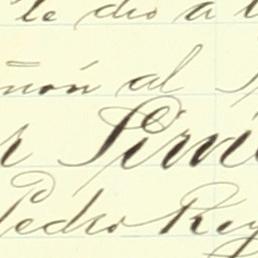 le dio a
ñón al
Sim
Pedro Rey